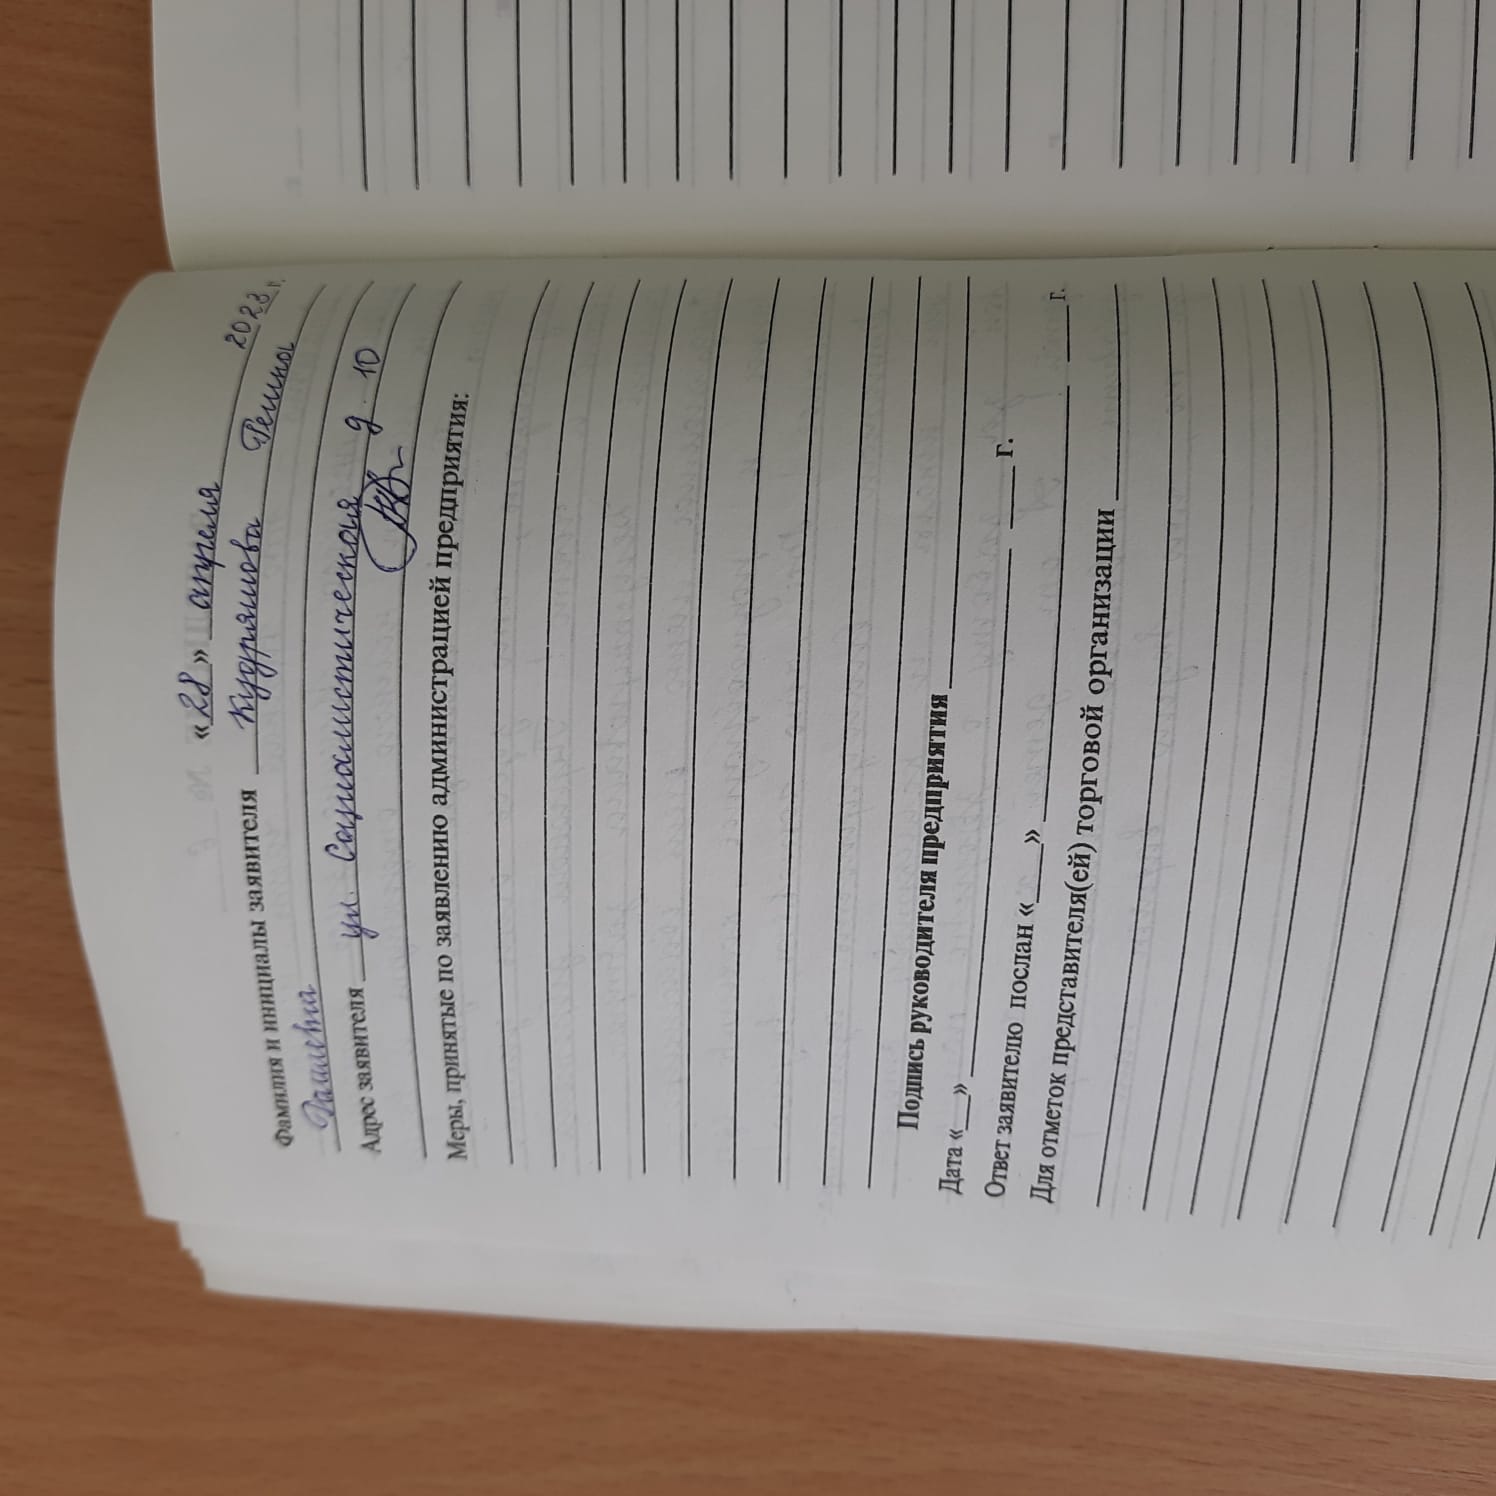 «28» апреля 2023 г.
Фамилия и инициалы заявителя Кудряшова Регина
Рашевна
Адрес заявителя ул. Социалистическая д. 10
Меры, принятые по заявлению администрацией предприятия:
Подпись руководителя предприятия
Дата «__» г.
Ответ заявителю послан «__» г.
Для отметок представителя(ей) торговой организации